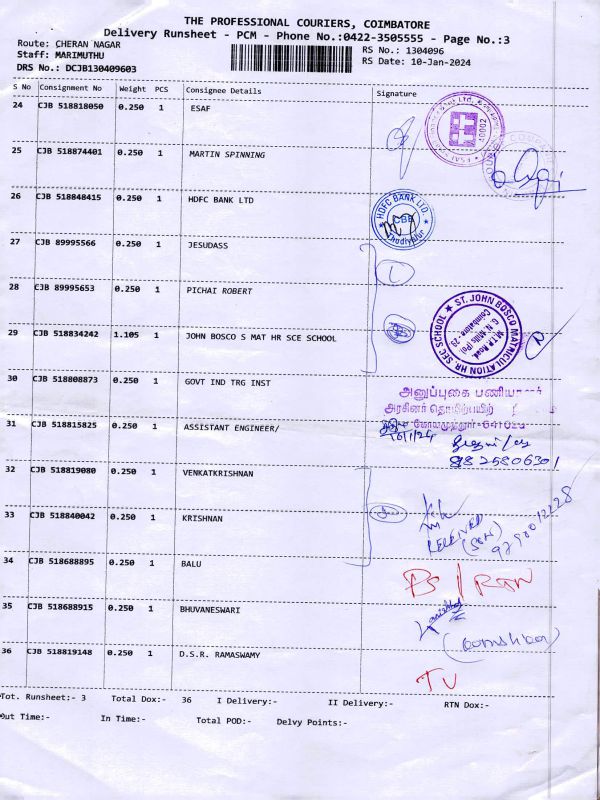 THE PROFESSIONAL COURIERS, COIMBATORE
Delivery Runsheet - PCM - Phone No.:0422-3505555 - Page No.:3
Route: CHERAN NAGAR
Staff: MARIMUTHU
DRS No.: DCJB130409603
RS No.: 1304096
RS Date: 10-Jan-2024
S No Consignment No Weight PCS Consignee Details Signature
24 CJB 518818050 0.250 1 ESAF
25 CJB 518874401 0.250 1 MARTIN SPINNING
26 CJB 518848415 0.250 1 HDFC BANK LTD
HDFC BANK LTD.
CBE
27 CJB 89995566 0.250 1 JESUDASS
28 CJB 89995653 0.250 1 PICHAI ROBERT
29 CJB 518834242 1.105 1 JOHN BOSCO S MAT HR SCE SCHOOL
ST. JOHN BOSCO MATRICULATION HR SEC SCHOOL
M.T.P. Road,
G.N. Mills (Po)
Coimbatore - 29
30 CJB 518808873 0.250 1 GOVT IND TRG INST
அனுப்புகை
31 CJB 518815825 0.250 1 ASSISTANT ENGINEER/
10/1/24
32 CJB 518819080 0.250 1 VENKATKRISHNAN
33 CJB 518840042 0.250 1 KRISHNAN
RECEIVED
(SON)
34 CJB 518688895 0.250 1 BALU
35 CJB 518688915 0.250 1 BHUVANESWARI
36 CJB 518819148 0.250 1 D.S.R. RAMASWAMY
Tot. Runsheet:- 3 Total Dox:- 36 I Delivery:- II Delivery:- RTN Dox:-
Out Time:- In Time:- Total POD:- Delvy Points:-